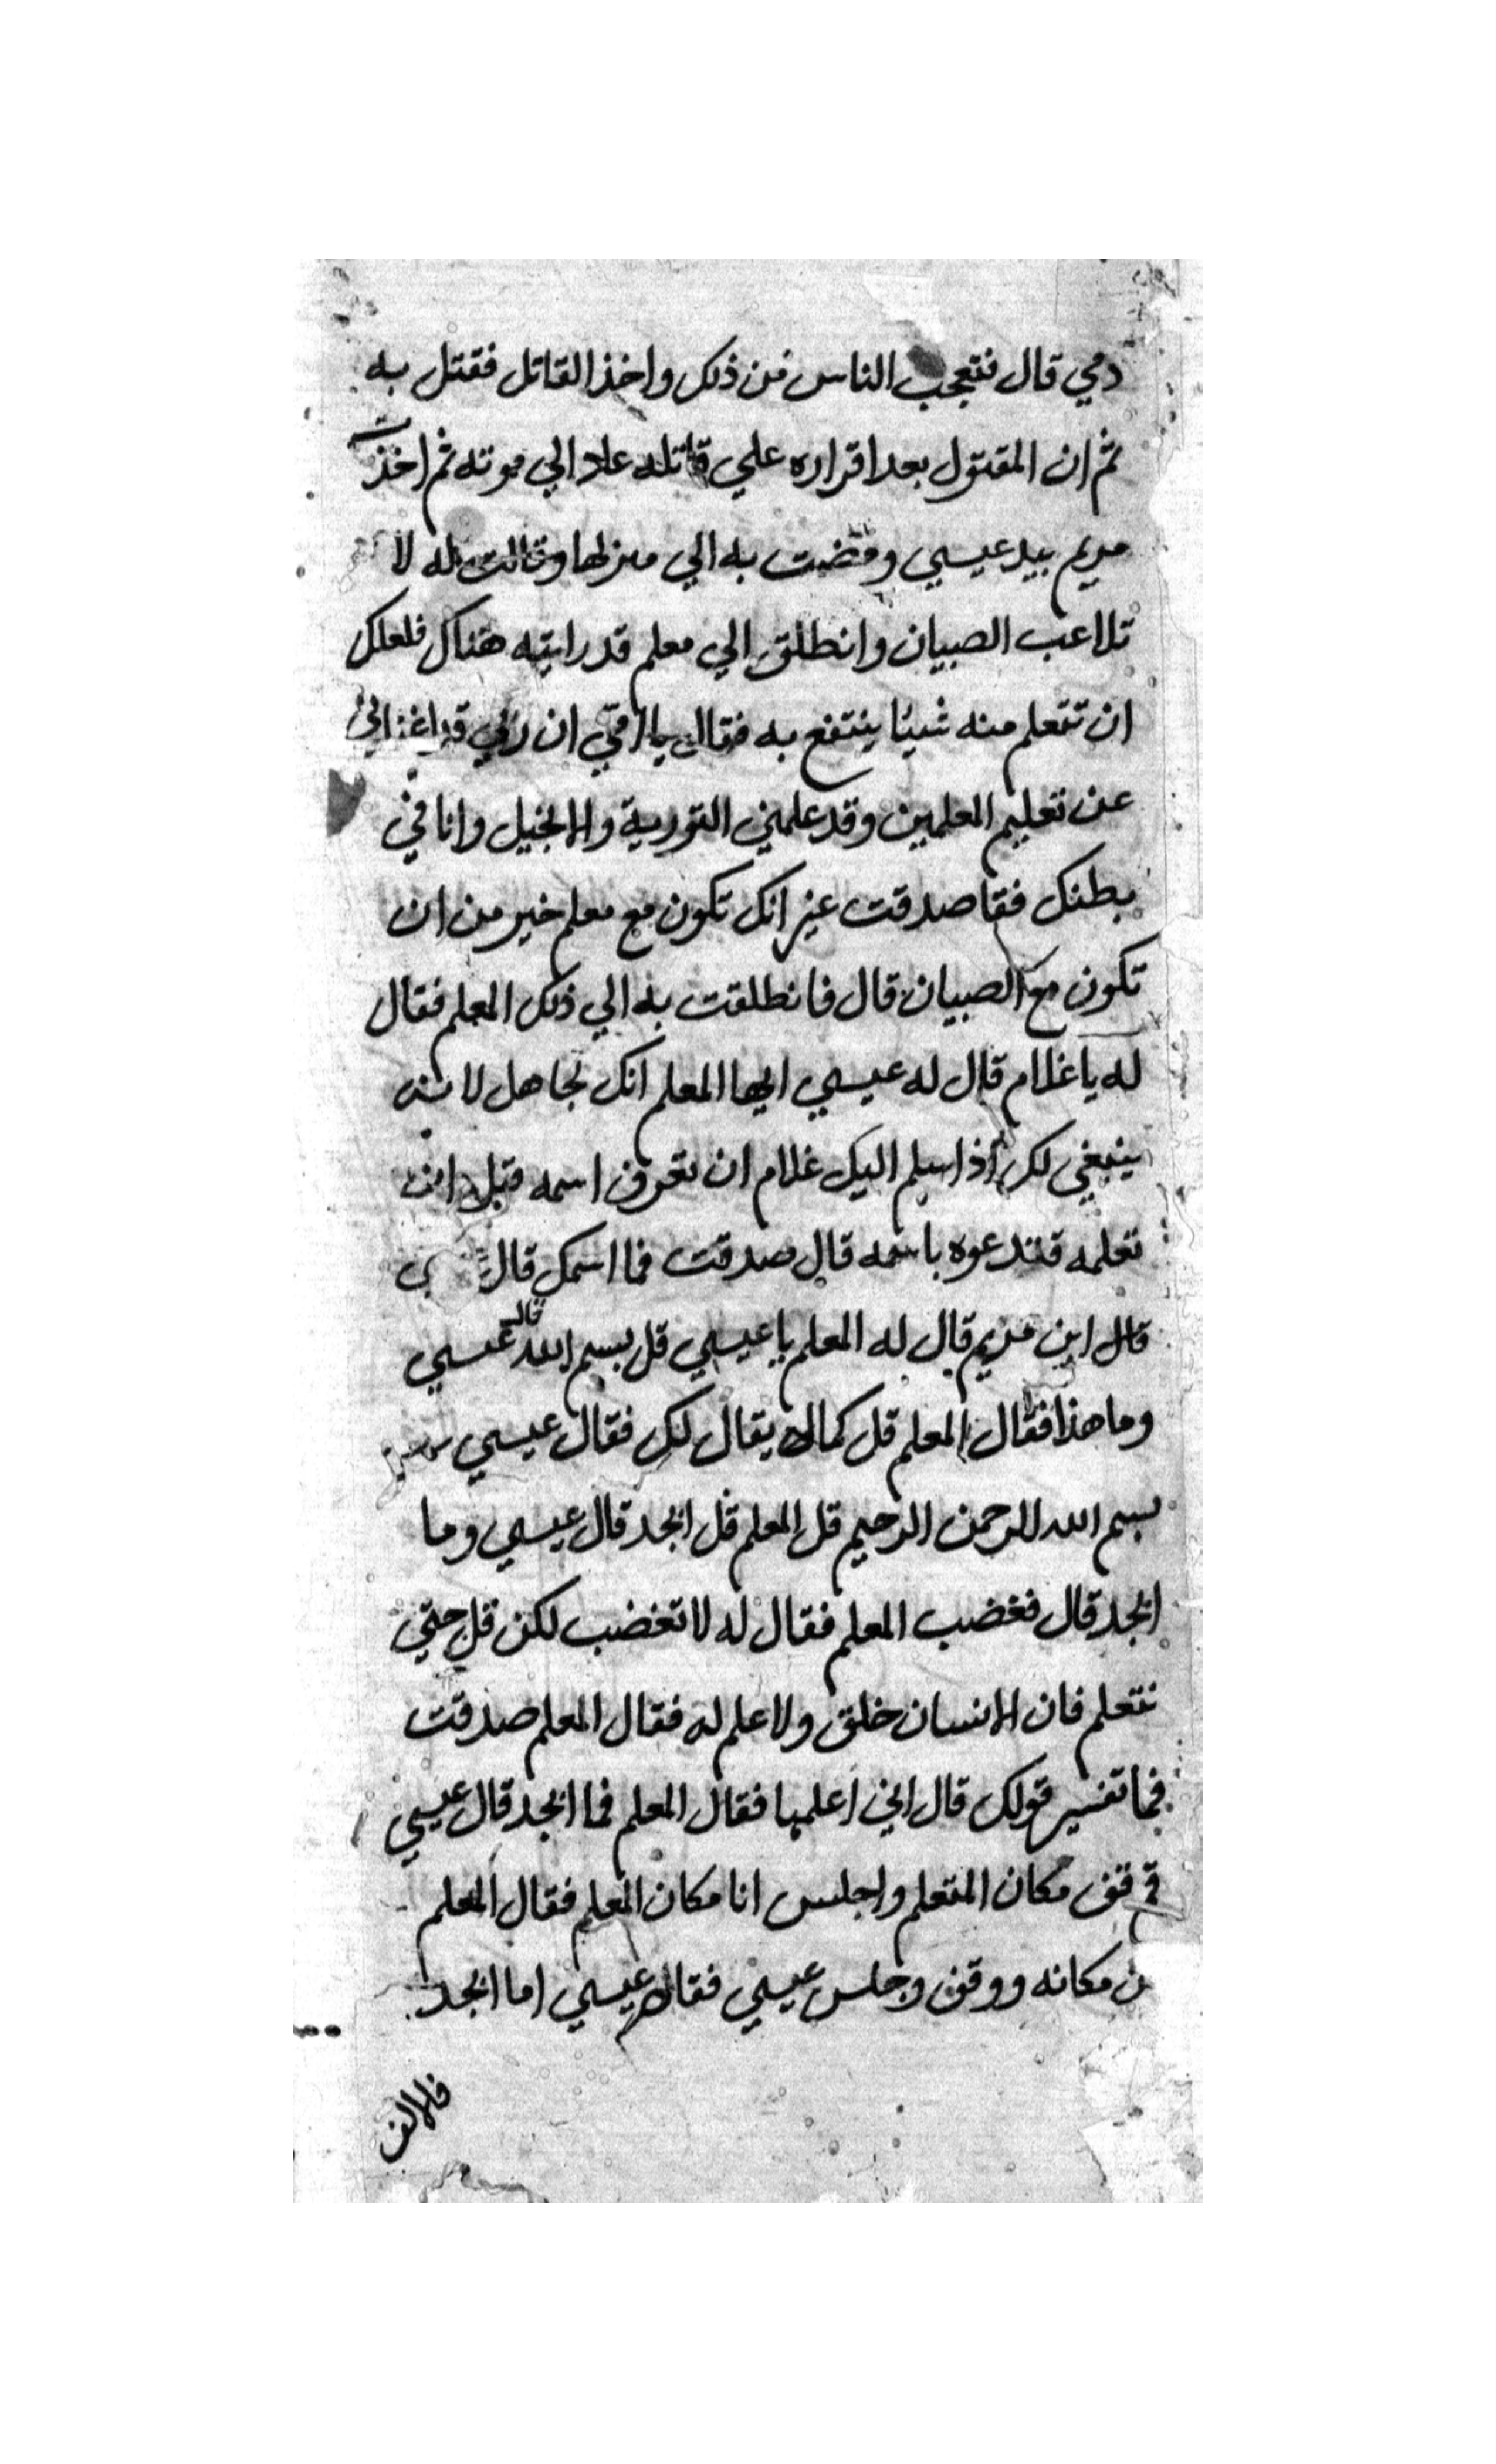 دمي قال فتعجب الناس من ذلك واخذ القاتل فقتل به
ثم ان المقتول بعد اقراره علي قاتله عاد الي موته ثم اخذت
مريم بيد عيسي ومضت به الي منزلها وقالت له لا
تلاعب الصبيان وانطلق الي معلم قد رايته هناك فلعلك
ان تتعلم منه شيئا ينتفع به فقال يا امي ان ربي قد اغناني
عن تعليم المعلمين وقد علمني التورية والانجيل وانا في
بطنك فقا صدقت غير انك تكون مع معلم خير من ان
تكون مع الصبيان قال فانطلقت به الي ذلك المعلم فقال
له يا غلام قال له عيسي ايها المعلم انك لجاهل لا
ينبغي لك اذا سلم اليك غلام ان تعرف اسمه قبل ان
تعلمه فتدعوه باسمه قال صدقت فما اسمك قال
قال ابن مريم قال له المعلم يا عيسي قل بسم الله قال عيسي
وما هذا فقال المعلم قل كما يقال لك فقال عيسي
بسم الله الرحمن الرحيم قل المعلم قل ابجد قال عيسي وما
ابجد قال فغضب المعلم فقال له لا تغضب لكن قل حتي
نتعلم فان الانسان خلق ولا علم له فقال المعلم صدقت
فما تفسير قولك قال اني اعلمها فقال المعلم فما ابجد قال عيسي
قم قف مكان المتعلم واجلس انا مكان المعلم فقال المعلم
من مكانه ووقف وجلس عيسي فقال عيسي اما ابجد
فالالف